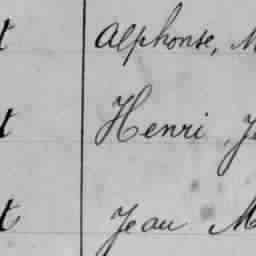 t Alphonse, M
t Henri, J
t Jean M